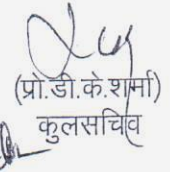 (प्रो.डी.के.शर्मा)
कुलसचिव